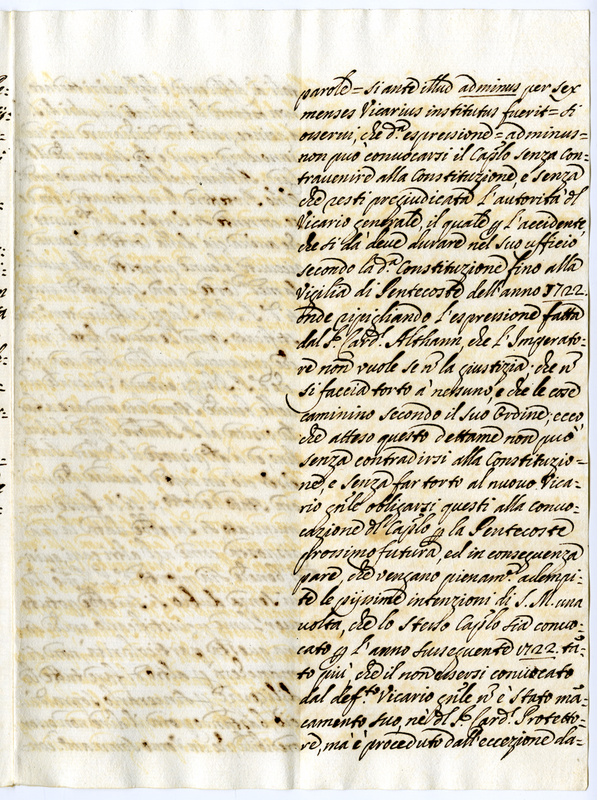 parole = si ante illud adminus per sex
menses Vicarius institutus fuerit = Si
osservi, che d.ª espressione = adminus =
non può convocarsi il Cap̃lo senza Con-
travenire alla Constituzione, e senza
che resti pregiudicata l'autorità dl
Vicario generale, il quale p l'accidente,
che si dà deve durare nel suo ufficio
secondo la d.ª Constituzione fino alla
Vigilia di Pentecoste dell'anno 1722.
Onde ripigliando l'espressione fatta
dal S.r Card.l Althann, che l'Imperato-
re non vuole se ñ la giustizia: che ñ
si faccia torto à nessuno, e che le cose
caminino secondo il suo Ordine; ecco
che atteso questo dettame non può
senza contradirsi alla Constituzio-
ne, e senza far torto al nuovo Vica-
rio gñle obligarsi questi alla convo-
cazione dl Cap̃lo p la Pentecoste
prossimo futura, ed in conseguenza
pare, che vengano pienam.e adempi-
te le pijssime intenzioni di S. M. una
volta, che lo stesso Cap̃lo sia convo-
cato p l'anno susseguente 1722. tã-
to più, che il non essersi convocato
dal def.to Vicario gñle ñ è stato mã-
camento suo, nè dl S.r Card.l Protetto-
re, mà è proceduto dall'eccezione da-